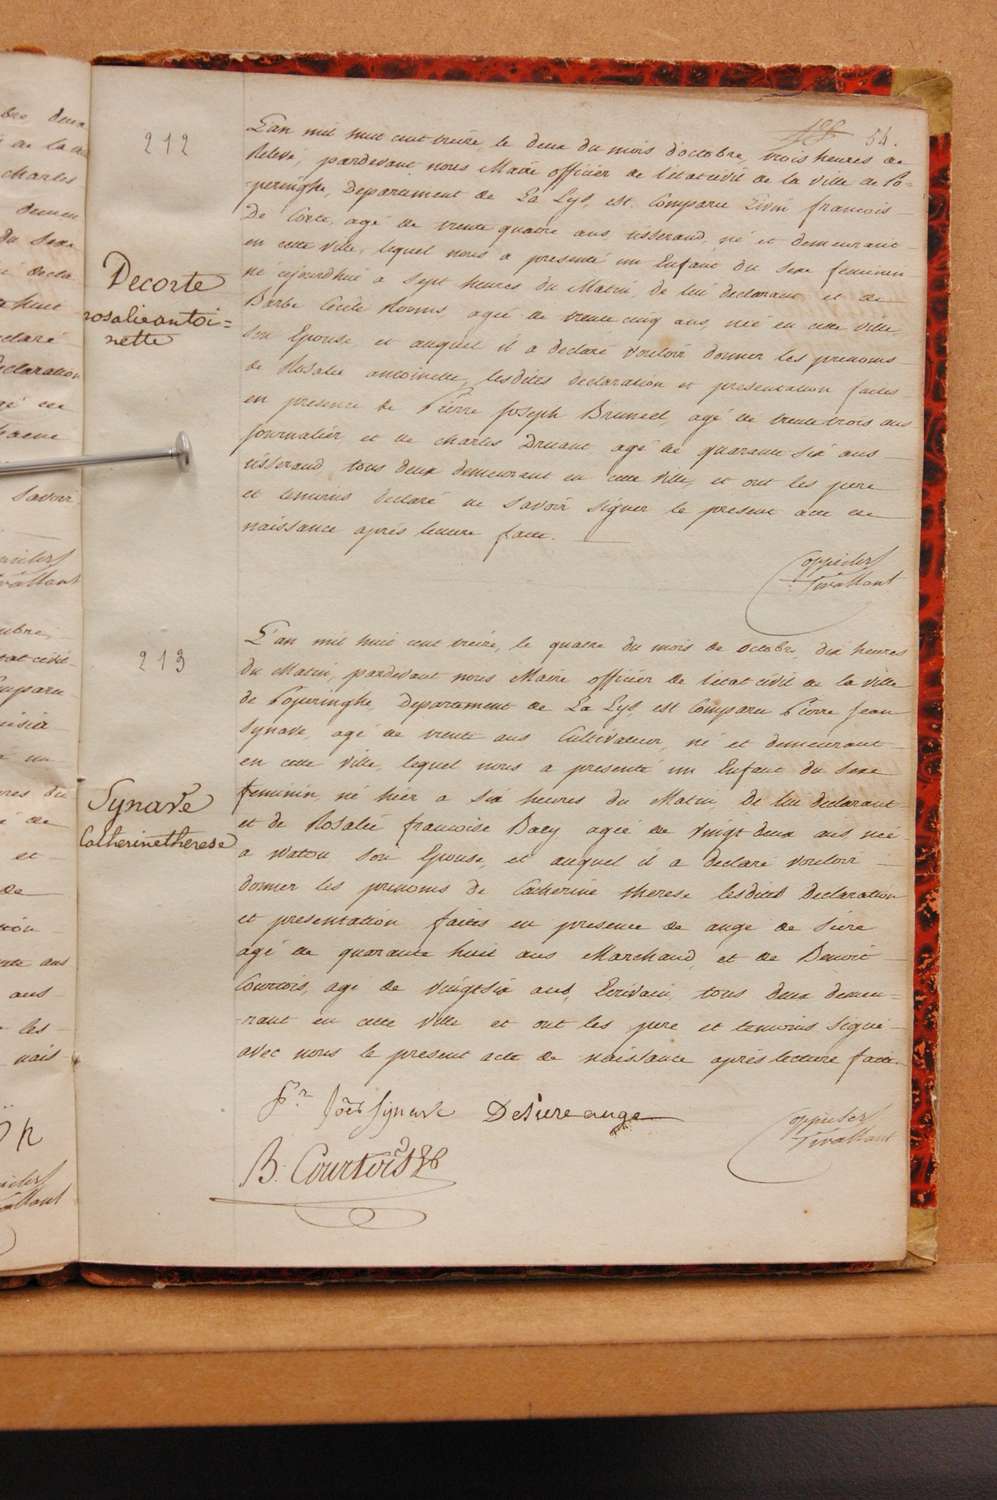 54.
212
Decorte
rosalie antoi=
nette
L'an mil huit cent treize, le deux du mois d'octobre, trois heures de
Relevé, pardevant nous Maire officier de l'etat civil de la ville de Po-
peringhe, Departement de La Lys, est Comparu Livin francois
De Corte, agé de trente quatre ans, tisserand, né et demeurant
en cette ville, lequel nous a presenté un Enfant du Sexe feminin
né cejourdhui a Sept heures du Matin, de lui declarant et de
Barbe Cecile Rooms, agée de trente cinq ans, née en cette ville
Son Epouse, et auquel il a declaré vouloir donner les prenoms
de Rosalie antoinette, lesdites declaration et presentation faites
en presence de Pierre Joseph Bruneel, agé de trente trois ans
Journalier, et de charles Druant agé de quarante Six ans
tisserand, tous deux demeurant en cette ville, et ont les pere
et temoins declaré ne Savoir Signer le present acte de
naissance après lecture faite.
213
Synave
Catherine therese
L'an mil huit cent treize, le quatre du mois de octobre, dix heures
du Matin, pardevant nous Maire officier de l'etat civil de la ville
de Poperinghe, Departement de La Lys est Comparu Pierre Jean
Synave, agé de trente ans Cultivateur, né et demeurant
en cette ville, lequel nous a presenté un Enfant du Sexe
feminin, né hier a Six heures du Matin, de lui declarant
et de Rosalie francoise Baey agée de vingt deux ans née
a Watou Son Epouse, et auquel il a declaré vouloir
donner les prenoms de Catherine therese lesdites declaration
et presentation faites en presence de ange de Sure
agé de quarante huit ans Marchand, et de Benoit
Courtois, agé de vingtsix ans, Ecrivain, tous deux demeu=
-rant en cette ville et ont les pere et temoins Signé
avec nous le present acte de naissance après lecture faite.
Pr Joes Synave DeSure ange
B. Courtois